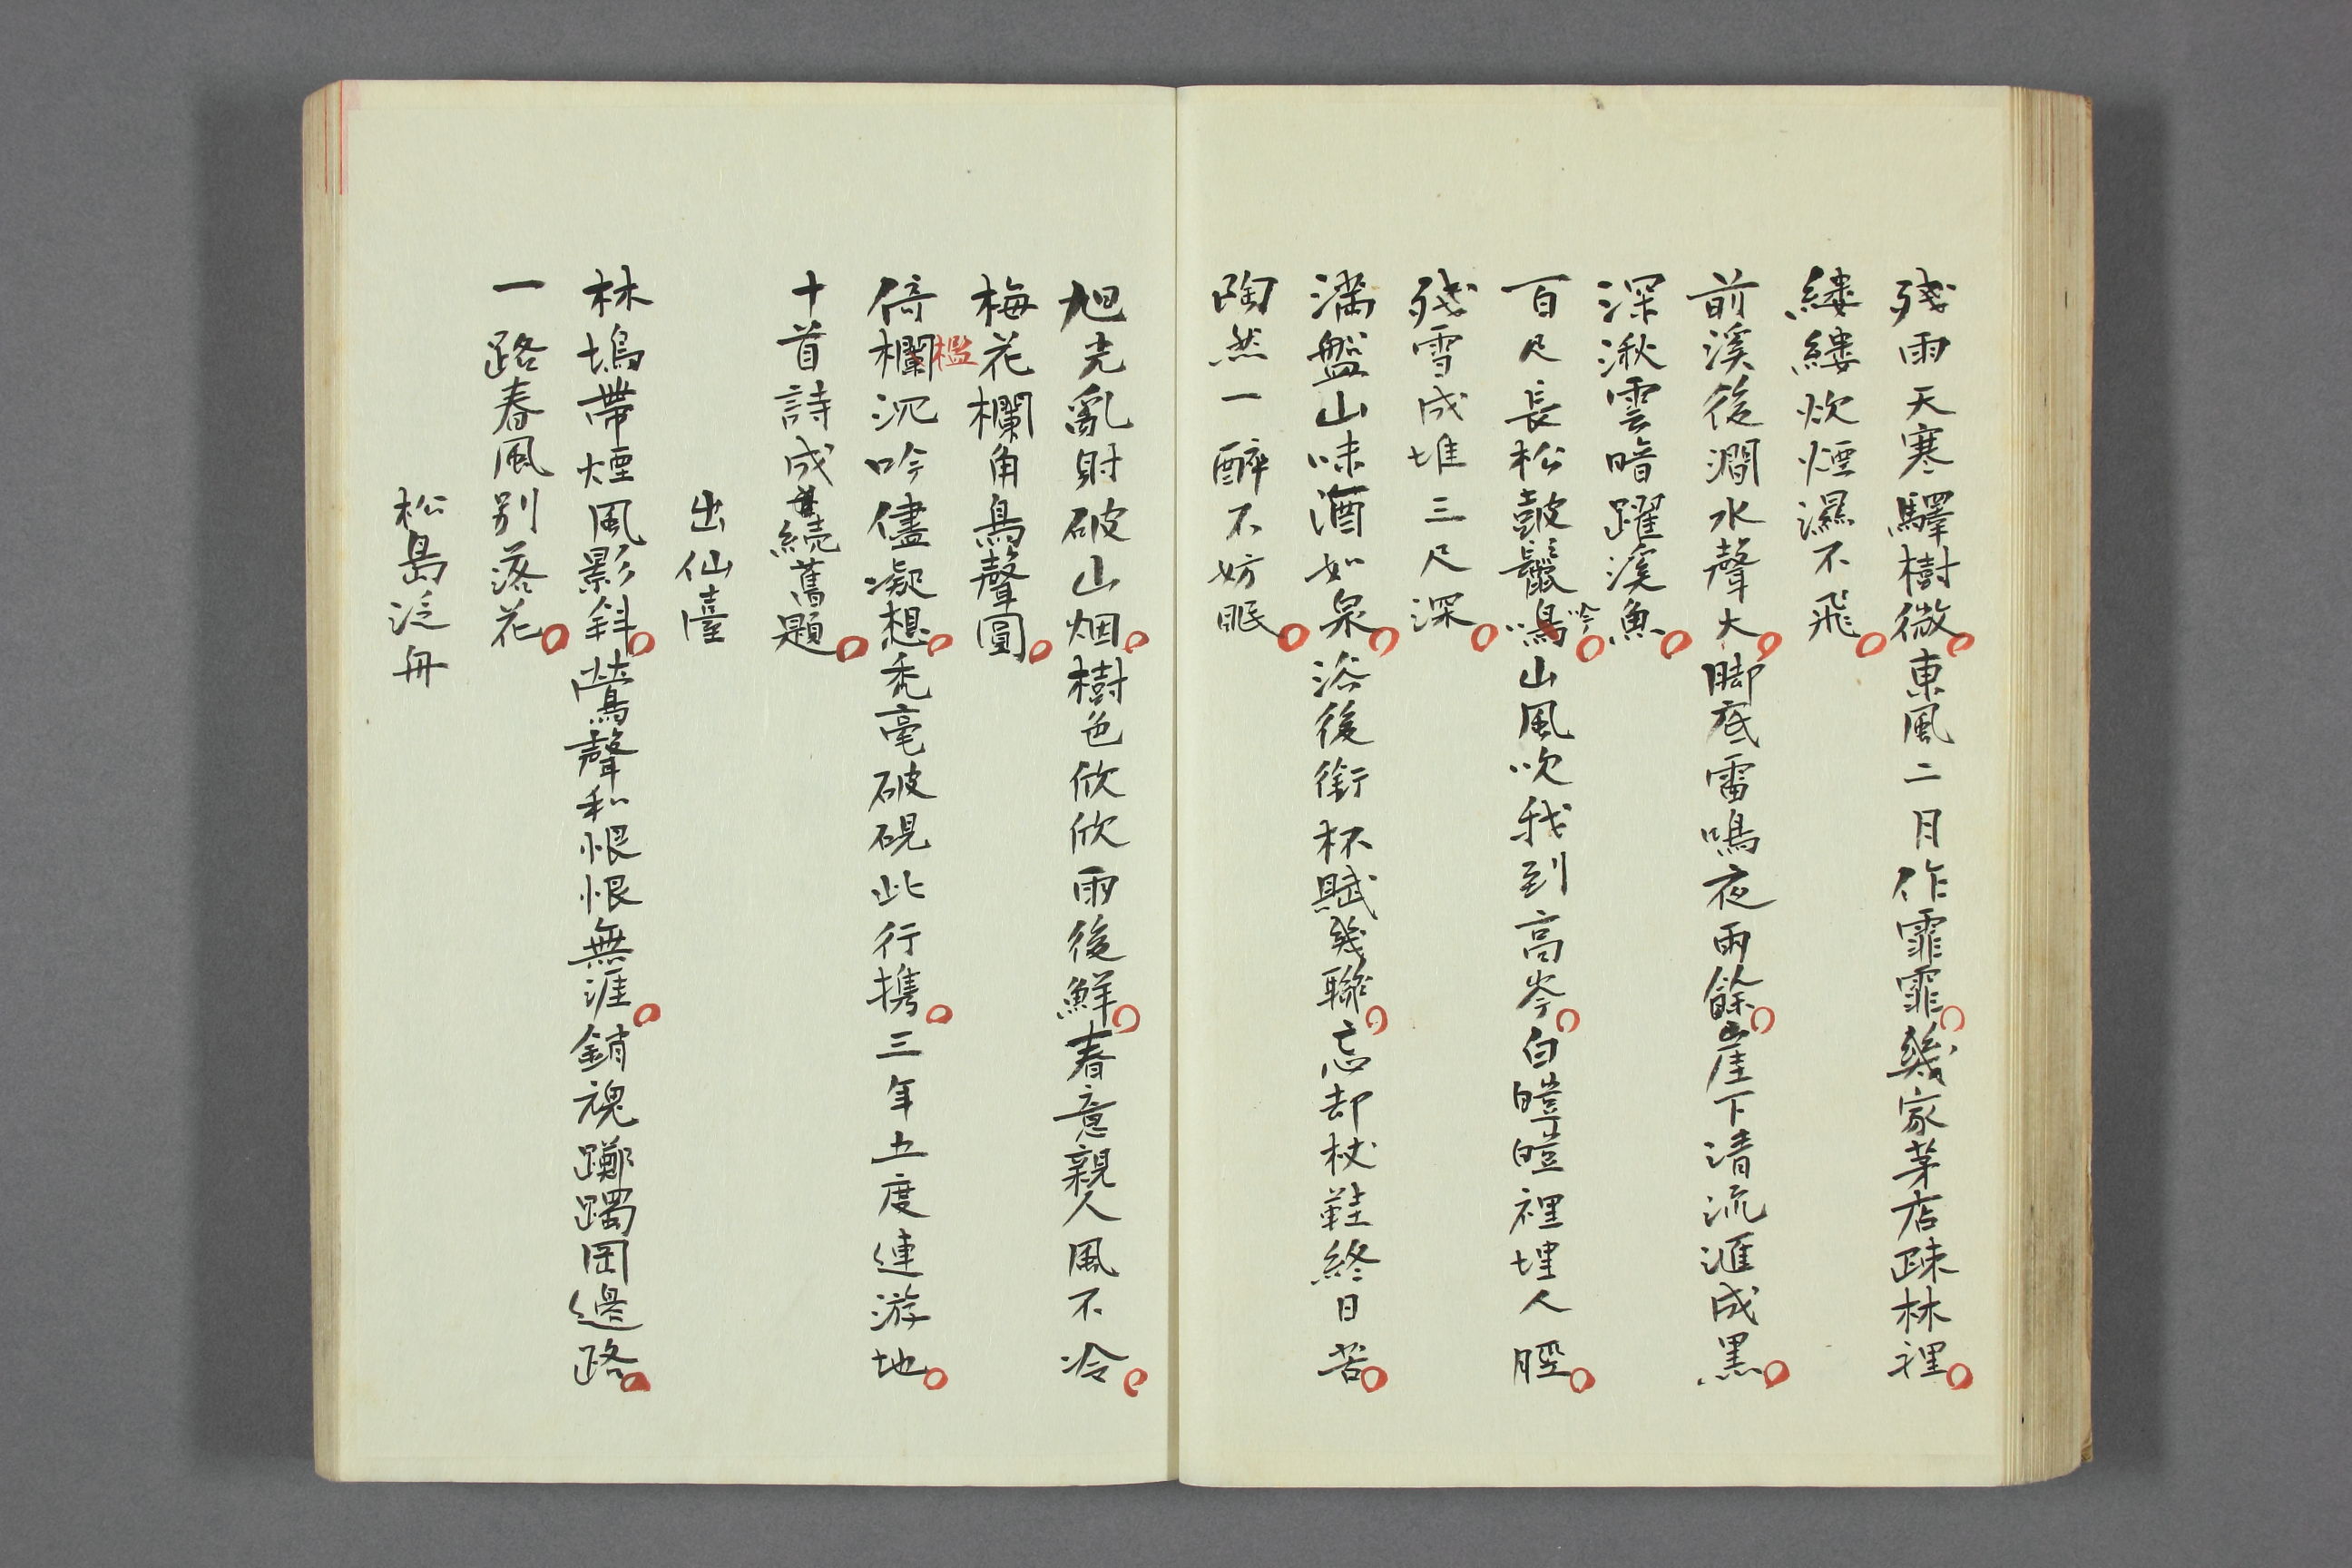 残雨天寒驛樹微東風二月作霏霏幾家茅店疎林裡
縷縷炊煙濕不飛
前溪後澗水聲大脚底雷鳴夜雨餘崖下清流滙成黒
深湫雲暗躍溪魚
百尺長松鼓鬣鳴山風吹我到高岑白皚皚裡埋人脛
吟
残雪成堆三尺深
満盤山味酒如泉浴後銜杯賦幾聯忘却杖鞋終日苦
陶然一醉不妨眠
旭光亂射破山烟樹色欣欣雨後鮮春意親人風不冷
梅花欄角鳥聲圓
檻
倚欄沉吟儘凝想禿毫破硯此行携三年五度連游地
十首詩成続舊題
出仙臺
林塢帶煙風影斜鶯聲和恨恨無涯銷魂躑躅岡邊路
一路春風別落花
松島泛舟